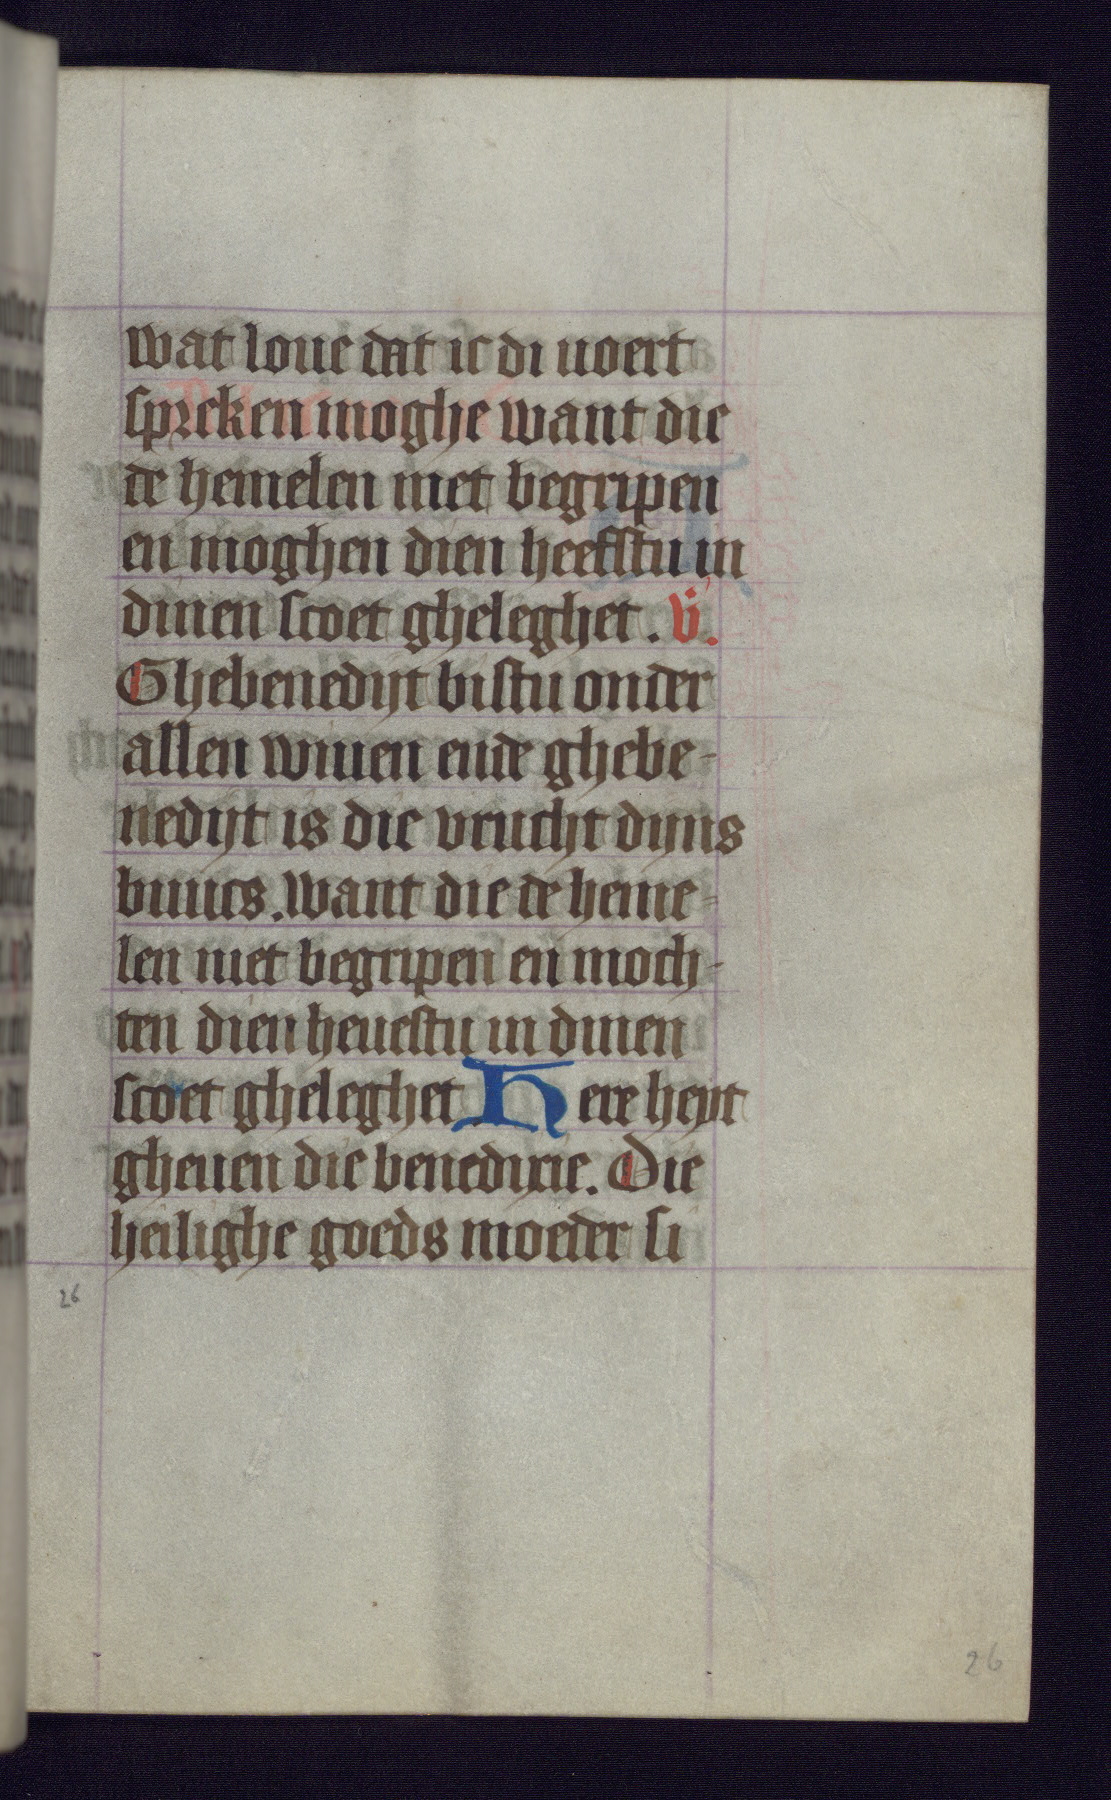 wat loue dat ic di uoert
spreken moghe want die
de hemelen niet begripen
en moghen dien heefstu in
dinen scoet gheleghet. v.
Ghebenedijt bistu onder
allen wiuen ende ghebe-
nedijt is die vrucht dijns
buucs. want die de heme-
len niet begripen en moch-
ten dien heuestu in dinen
scoet gheleghet Here heyt
gheuen die benedixie. Die
heilighe goeds moeder si
26
26